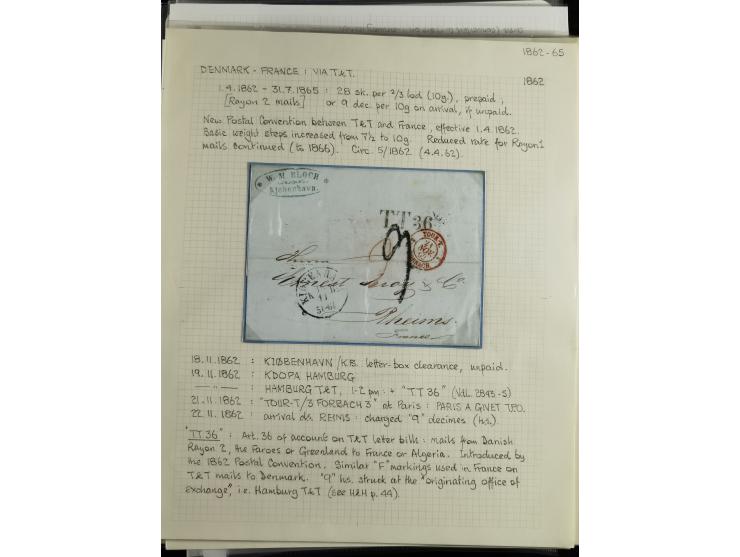 1862-65
DENMARK - FRANCE : VIA T&T.
1862
1.4.1862 - 31.7.1865 : 28 sk. per 2/3 lod (10g.), prepaid,
[Rayon 2 mails] or 9 dec. per 10g on arrival, if unpaid.
New Postal Convention between T&T and France, effective 1.4.1862.
Basic weight steps increased from 7½ to 10g. Reduced rate for Rayon 1
mails continued (to 1866). Circ. 5/1862 (4.4.62).
* W. H. BLOCH *
Kjöbenhavn.
TT 36
TOUR-T
21
FORBACH
9
KIØBENHAVN
& Co.
Rheims.
France
18.11.1862 : KIØBENHAVN/KB. letter-box clearance, unpaid.
19.11.1862 : KDOPA HAMBURG
—"— : HAMBURG T&T, 1-2 pm : + "TT 36" (VdL. 2843-S)
21.11.1862 : "TOUR-T/3 FORBACH 3" at Paris : PARIS A GIVET TPO.
22.11.1862 : arrival ds. REIMS : charged "9" decimes (h.s.)
"TT.36" : Art. 36 of account on T&T letter bills : mails from Danish
Rayon 2, the Faroes or Greenland to France or Algeria. Introduced by
the 1862 Postal Convention. Similar "F" markings used in France on
T&T mails to Denmark. "9" hs. struck at the "originating office of
exchange", i.e. Hamburg T&T (see H&H p. 44).